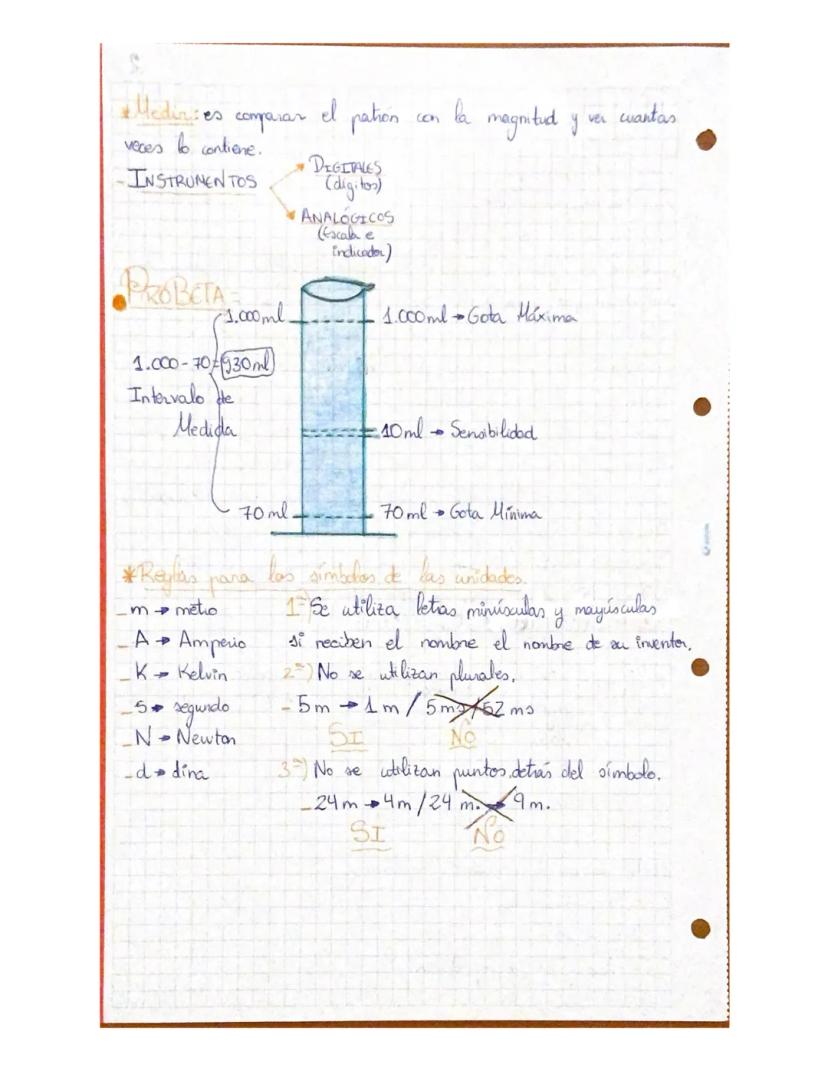 * Medir: es comparar el patrón con la magnitud y ver cuantas
veces lo contiene.
- INSTRUMENTOS
DIGITALES
(dígitos)
ANALÓGICOS
(Escala e
indicador)
PROBETA =
1.000 ml
1.000 ml → Gota Máxima
1.000 - 70 = 930 ml
Intervalo de
Medida
10 ml → Sensibilidad
70 ml
70 ml → Gota Mínima
* Reglas para los símbolos de las unidades.
- m → metro
1ª) Se utiliza letras minúsculas y mayúsculas
- A → Amperio
si reciben el nombre el nombre de su inventor.
- K → Kelvin
2ª) No se utilizan plurales.
- S → segundo
- 5 m → 1 m / 5 ms / 52 ms
- N → Newton
SI NO
- d → dina
3ª) No se utilizan puntos detrás del símbolo.
- 24 m → 4 m / 24 m. → 9 m.
SI NO